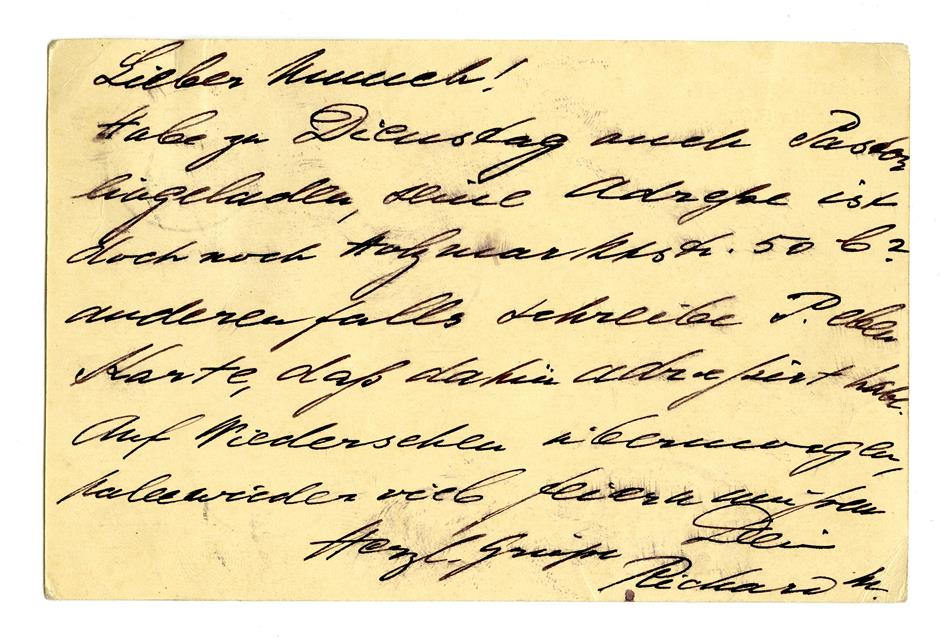 Lieber Munch!
Habe zu Dienstag auch Pastor
eingeladen, seine Adreße ist
doch noch Holzmarktstr. 50 b?
anderenfalls schreibe P. eben
Karte, daß dahin adreßirt habe.
Auf Wiedersehen übermorgen,
habe wieder viel feiern müßen
Herzl. Grüße Dein
Richard M.